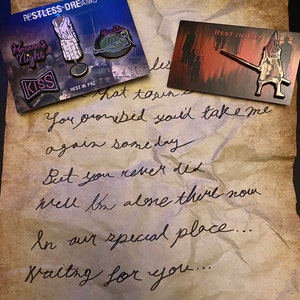 RESTLESS DREAMS
Heaven's
Night
KISS
REST IN PAZ
REST IN PAZ
that town
You promised you'd take me
again someday
But you never did
Well I'm alone there now
In our special place...
Waiting for you...